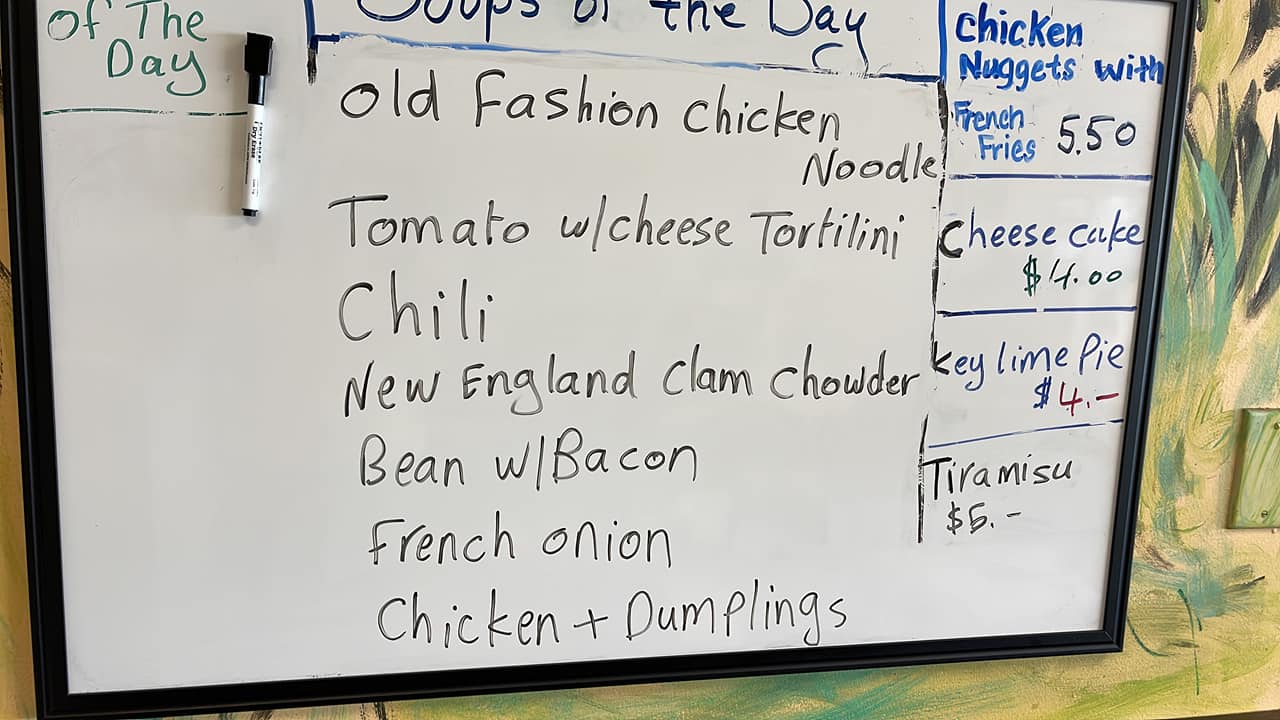 Of The
Day
Soups of the Day
Old Fashion Chicken
Noodle
Tomato w/cheese Tortilini
Chili
New England Clam Chowder
Bean w/Bacon
French onion
Chicken + Dumplings
Chicken
Nuggets with
French
Fries 5.50
Cheese cake
$4.00
Key lime Pie
$4.-
Tiramisu
$5.-